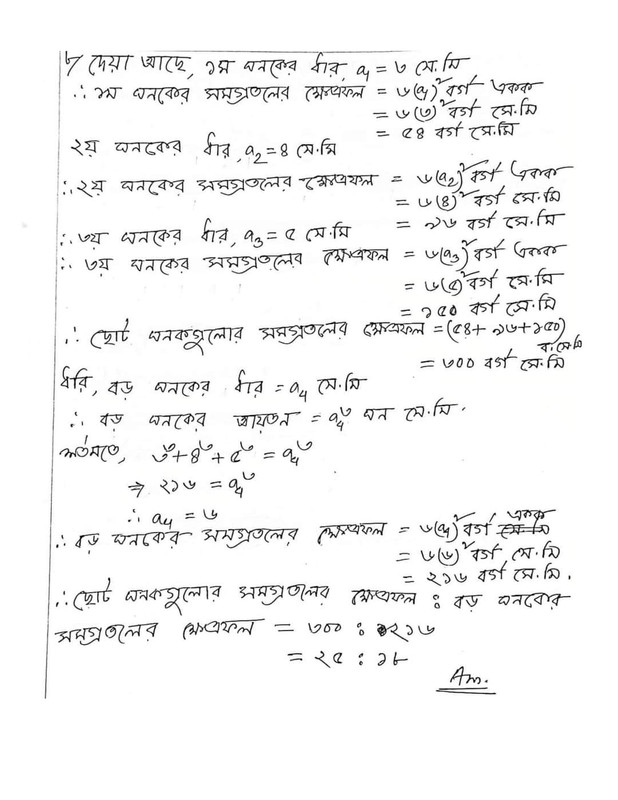 ৮ দেয়া আছে, ১ম ঘনকের ধার, a₁ = ৩ সে.মি
∴ ১ম ঘনকের সমগ্রতলের ক্ষেত্রফল = ৬(a₁)² বর্গ একক
= ৬(৩)² বর্গ সে.মি
= ৫৪ বর্গ সে.মি
২য় ঘনকের ধার, a₂ = ৪ সে.মি
∴ ২য় ঘনকের সমগ্রতলের ক্ষেত্রফল = ৬(a₂)² বর্গ একক
= ৬(৪)² বর্গ সে.মি
= ৯৬ বর্গ সে.মি
∴ ৩য় ঘনকের ধার, a₃ = ৫ সে.মি
∴ ৩য় ঘনকের সমগ্রতলের ক্ষেত্রফল = ৬(a₃)² বর্গ একক
= ৬(৫)² বর্গ সে.মি
= ১৫০ বর্গ সে.মি
∴ ছোট ঘনকগুলোর সমগ্রতলের ক্ষেত্রফল = (৫৪+৯৬+১৫০) ব.সে.মি
= ৩০০ বর্গ সে.মি
ধরি, বড় ঘনকের ধার = a₄ সে.মি
∴ বড় ঘনকের আয়তন = a₄³ ঘন সে.মি.
শর্তমতে, ৩³+৪³+৫³ = a₄³
⇒ ২১৬ = a₄³
∴ a₄ = ৬
∴ বড় ঘনকের সমগ্রতলের ক্ষেত্রফল = ৬(a₄)² বর্গ একক
= ৬(৬)² বর্গ সে.মি
= ২১৬ বর্গ সে.মি.
∴ ছোট ঘনকগুলোর সমগ্রতলের ক্ষেত্রফল : বড় ঘনকের
সমগ্রতলের ক্ষেত্রফল = ৩০০ : ২১৬
= ২৫ : ১৮
Am.